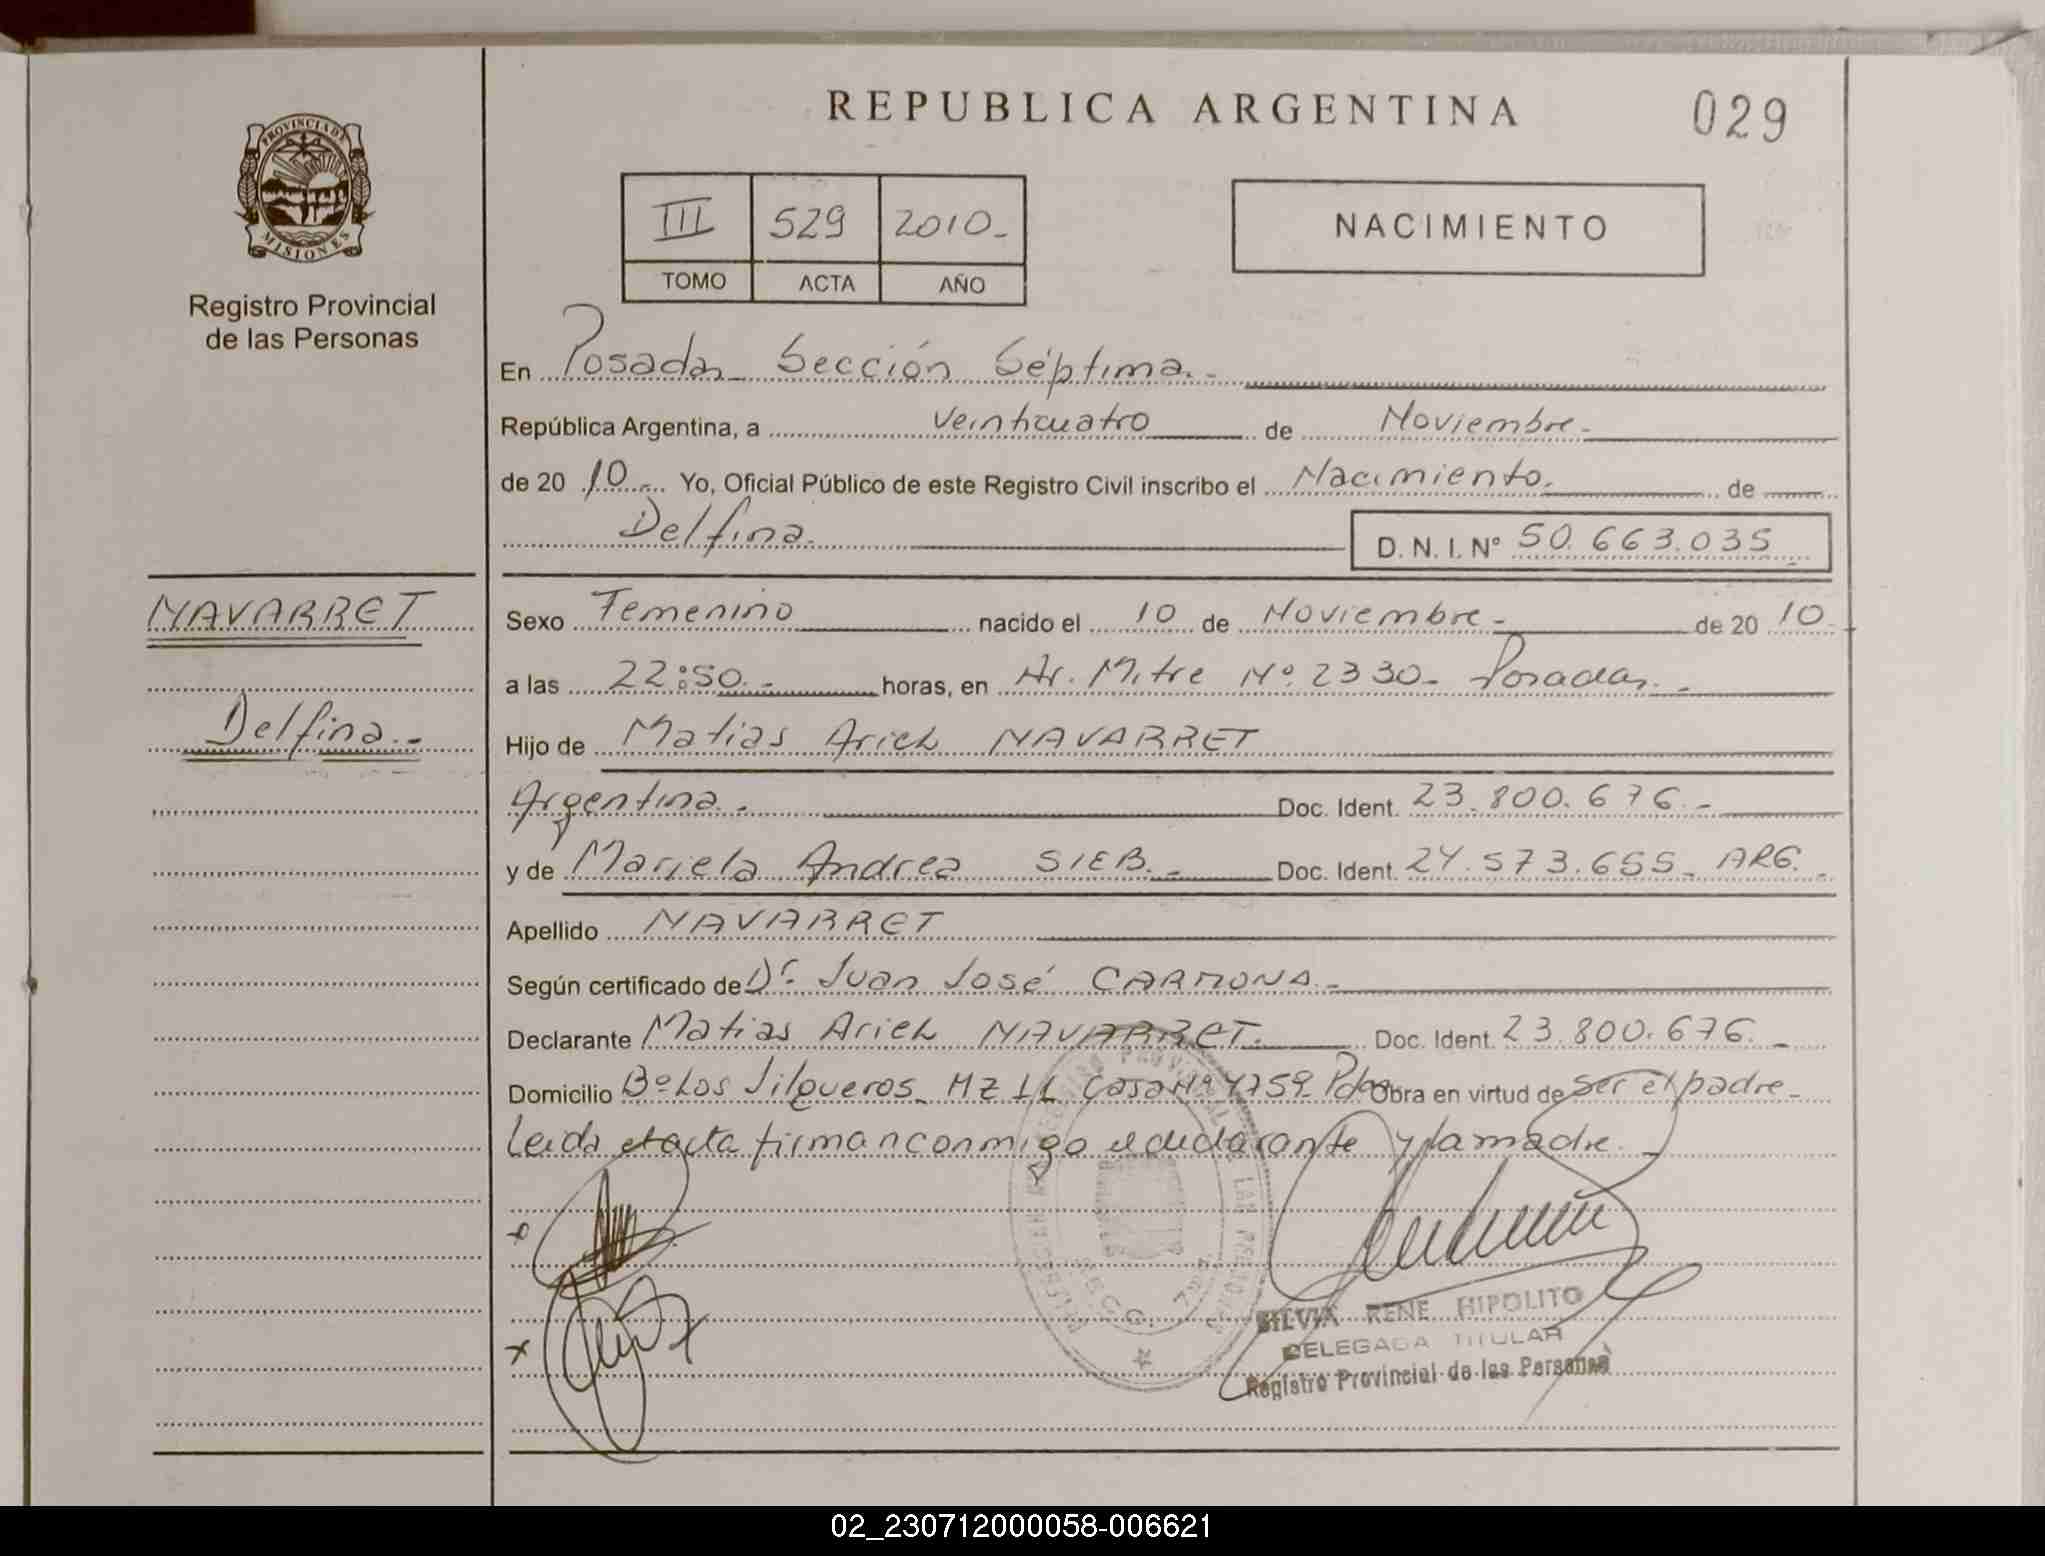 REPUBLICA ARGENTINA
029
PROVINCIA DE MISIONES
Registro Provincial
de las Personas
III 529 2010.-
TOMO ACTA AÑO
NACIMIENTO
En Posadas Sección Séptima.-
República Argentina, a Veinticuatro de Noviembre.-
de 20 10.- Yo, Oficial Público de este Registro Civil inscribo el Nacimiento. de
Delfina. D. N. I. Nº 50.663.035.-
NAVARRET
Delfina.-
Sexo Femenino nacido el 10 de Noviembre.- de 20 10.-
a las 22:50.- horas, en Av. Mitre Nº 2330- Posadas.-
Hijo de Matias Ariel NAVARRET
Argentina.- Doc. Ident. 23.800.676.-
y de Mariela Andrea SIEB.- Doc. Ident. 24.573.655- ARG.-
Apellido NAVARRET
Según certificado de Dr. Juan José CARMONA.-
Declarante Matias Ariel NAVARRET.- Doc. Ident. 23.800.676.-
Domicilio Bº Los Jilgueros- MZ Casa Nº 4759- Pdas Obra en virtud de ser el padre-
Leida el acta firman conmigo el declarante y la madre.-
SECC. 7ma.
SILVIA RENE HIPOLITO
DELEGADA TITULAR
Registro Provincial de las Personas
02_230712000058-006621